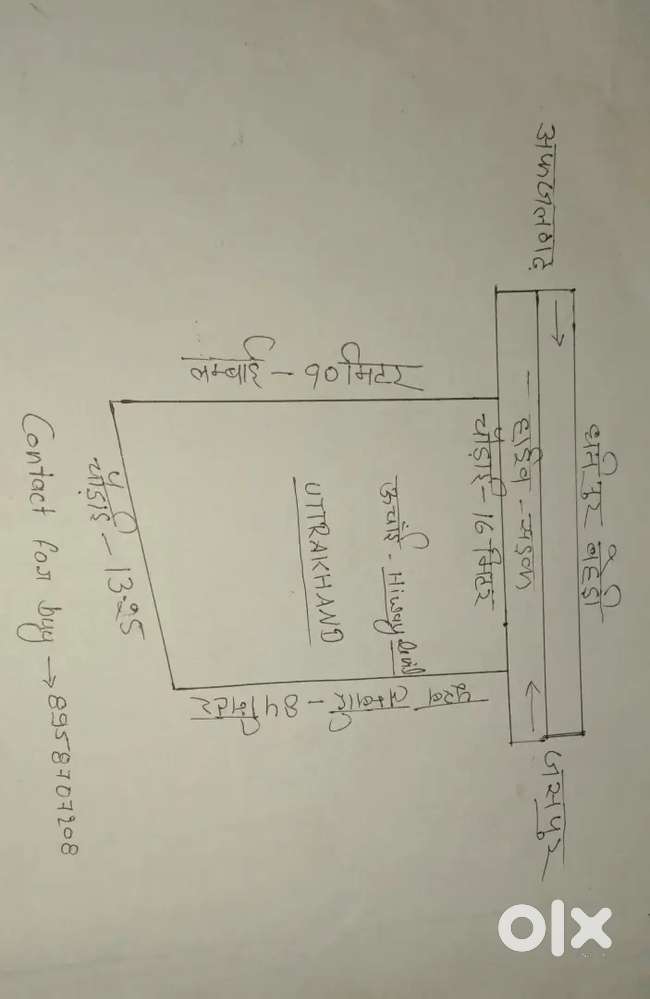 अफजलगढ़
→
←
जसपुर
- हाईव - सड़क
चौड़ाई - 16 मिटर
लम्बाई - 90 मिटर
ऊचाई - Hiway
UTTRAKHAND
पूरब लम्बाई - 84 मिटर
चौड़ाई - 13.25
Contact for buy → 8958707208
olx